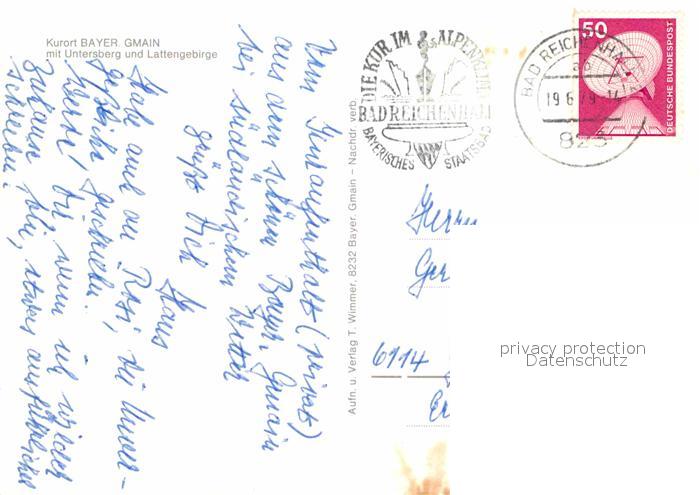 Kurort BAYER. GMAIN
mit Untersberg und Lattengebirge
Vom Kuraufenthalt (privat)
aus dem schönen Bayr. Gmain
bei südländischem Wetter
grüßt Dich
Hans
Habe auch an Rosi, die
geschrieben.
Werde Dir wenn ich wieder
Zuhause bin, etwas ausführlicher
schreiben.
Aufn. u. Verlag T. Wimmer, 8232 Bayer. Gmain – Nachdr. verb.
DIE KUR IM ALPENGL
BAD REICHENHALL
BAYERISCHES STAATSBAD
BAD REICHENHA
19.6.79-14
823
50
DEUTSCHE BUNDESPOST
Herrn
Ger
6114
Er
privacy protection
Datenschutz